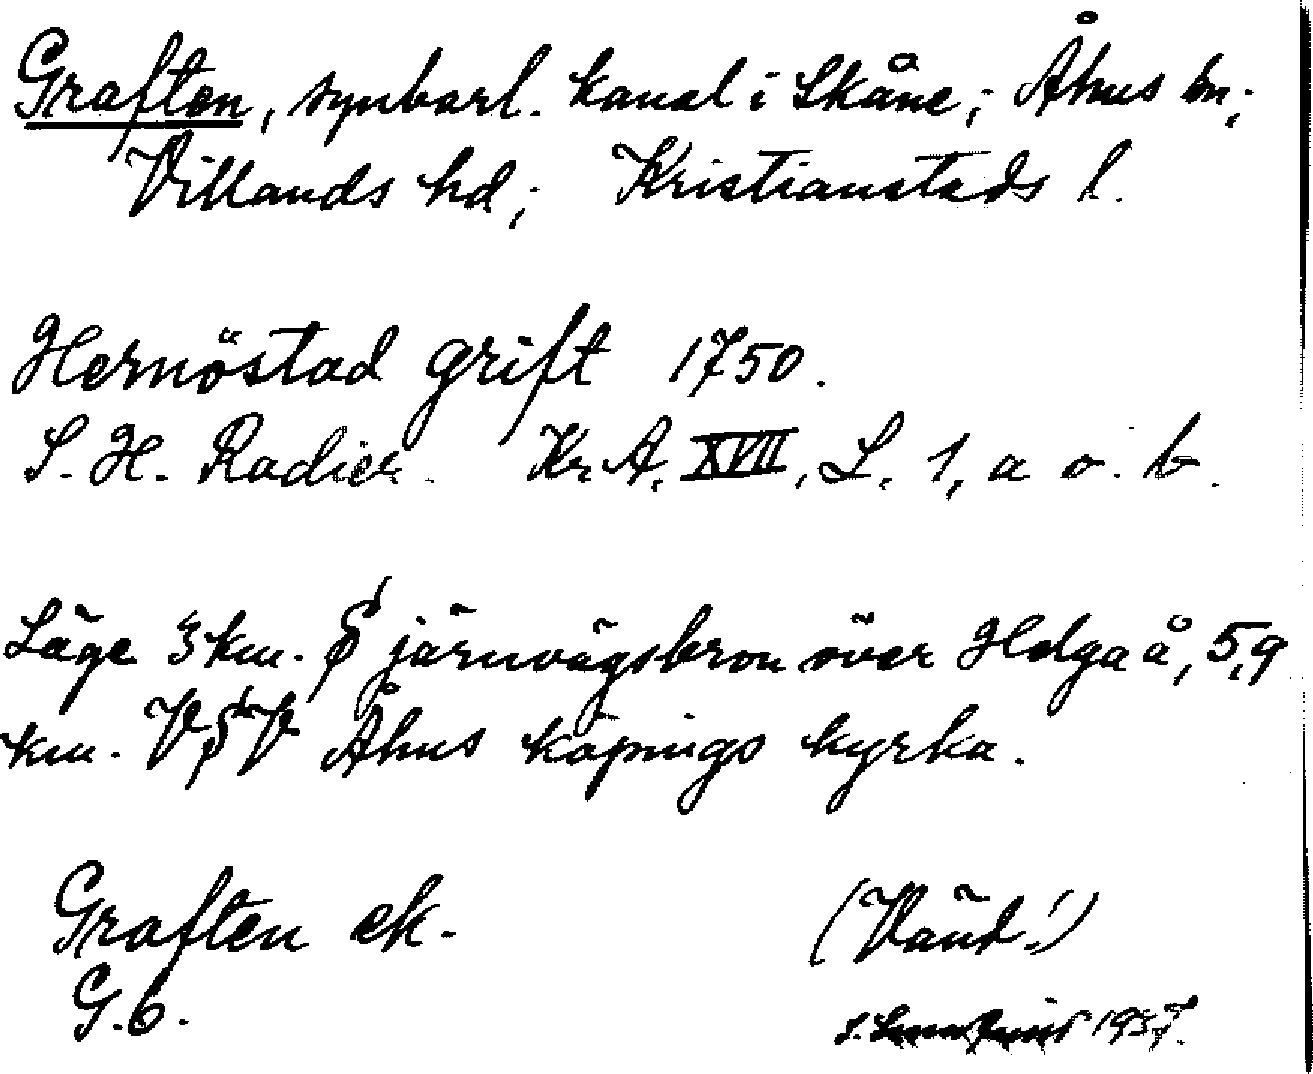 Graften, synbarl. kanal i Skåne; Åhus sn;
Villands hd; Kristianstads l.
Hernöstad grift 1750.
S. H. Radier. Kr A, XVII, L. 1, a o. b.
Läge 3 km. S järnvägsbron över Helga å, 5,9
km. VSV Åhus köpings kyrka.
Graften ek.
G.b.
(Vänd!)
1937.